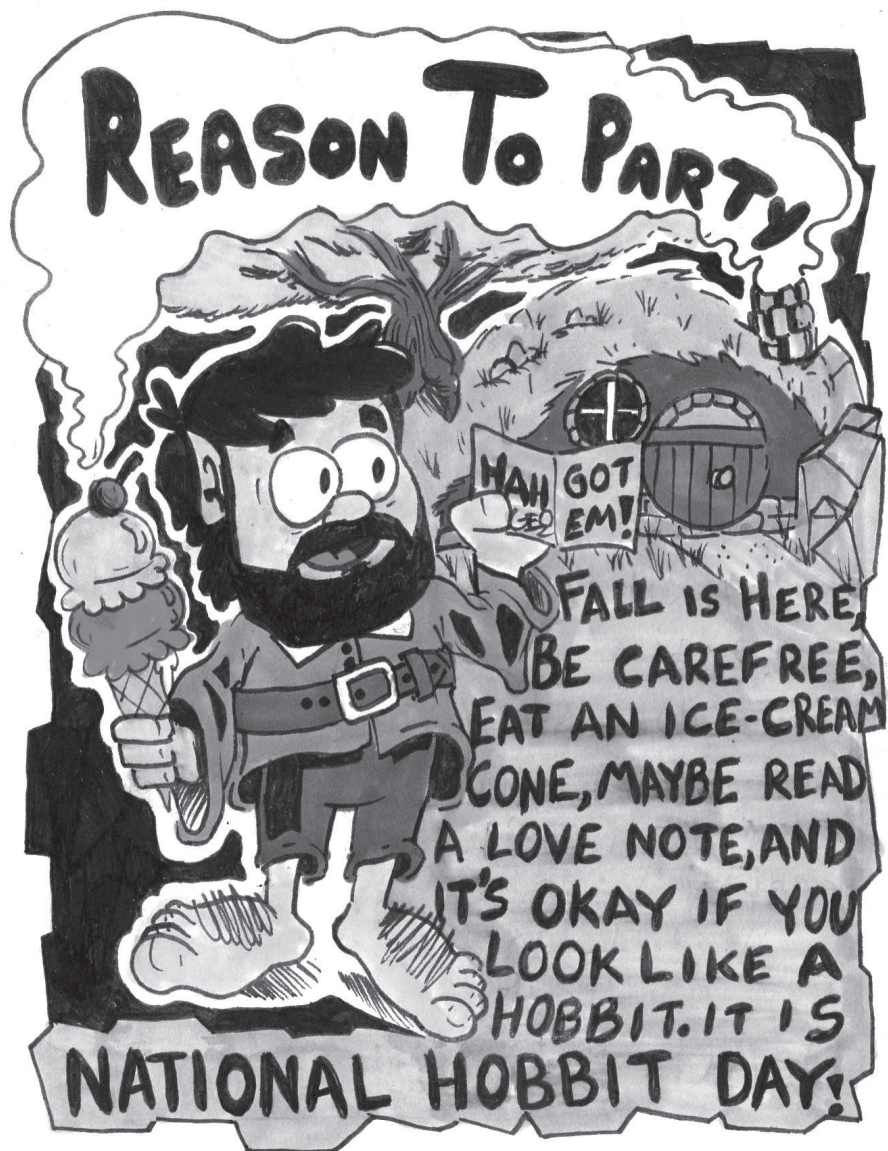 REASON TO PARTY
HAH
GOT
EM!
GEO
FALL IS HERE,
BE CAREFREE,
EAT AN ICE-CREAM
CONE, MAYBE READ
A LOVE NOTE, AND
IT'S OKAY IF YOU
LOOK LIKE A
HOBBIT. IT IS
NATIONAL HOBBIT DAY!